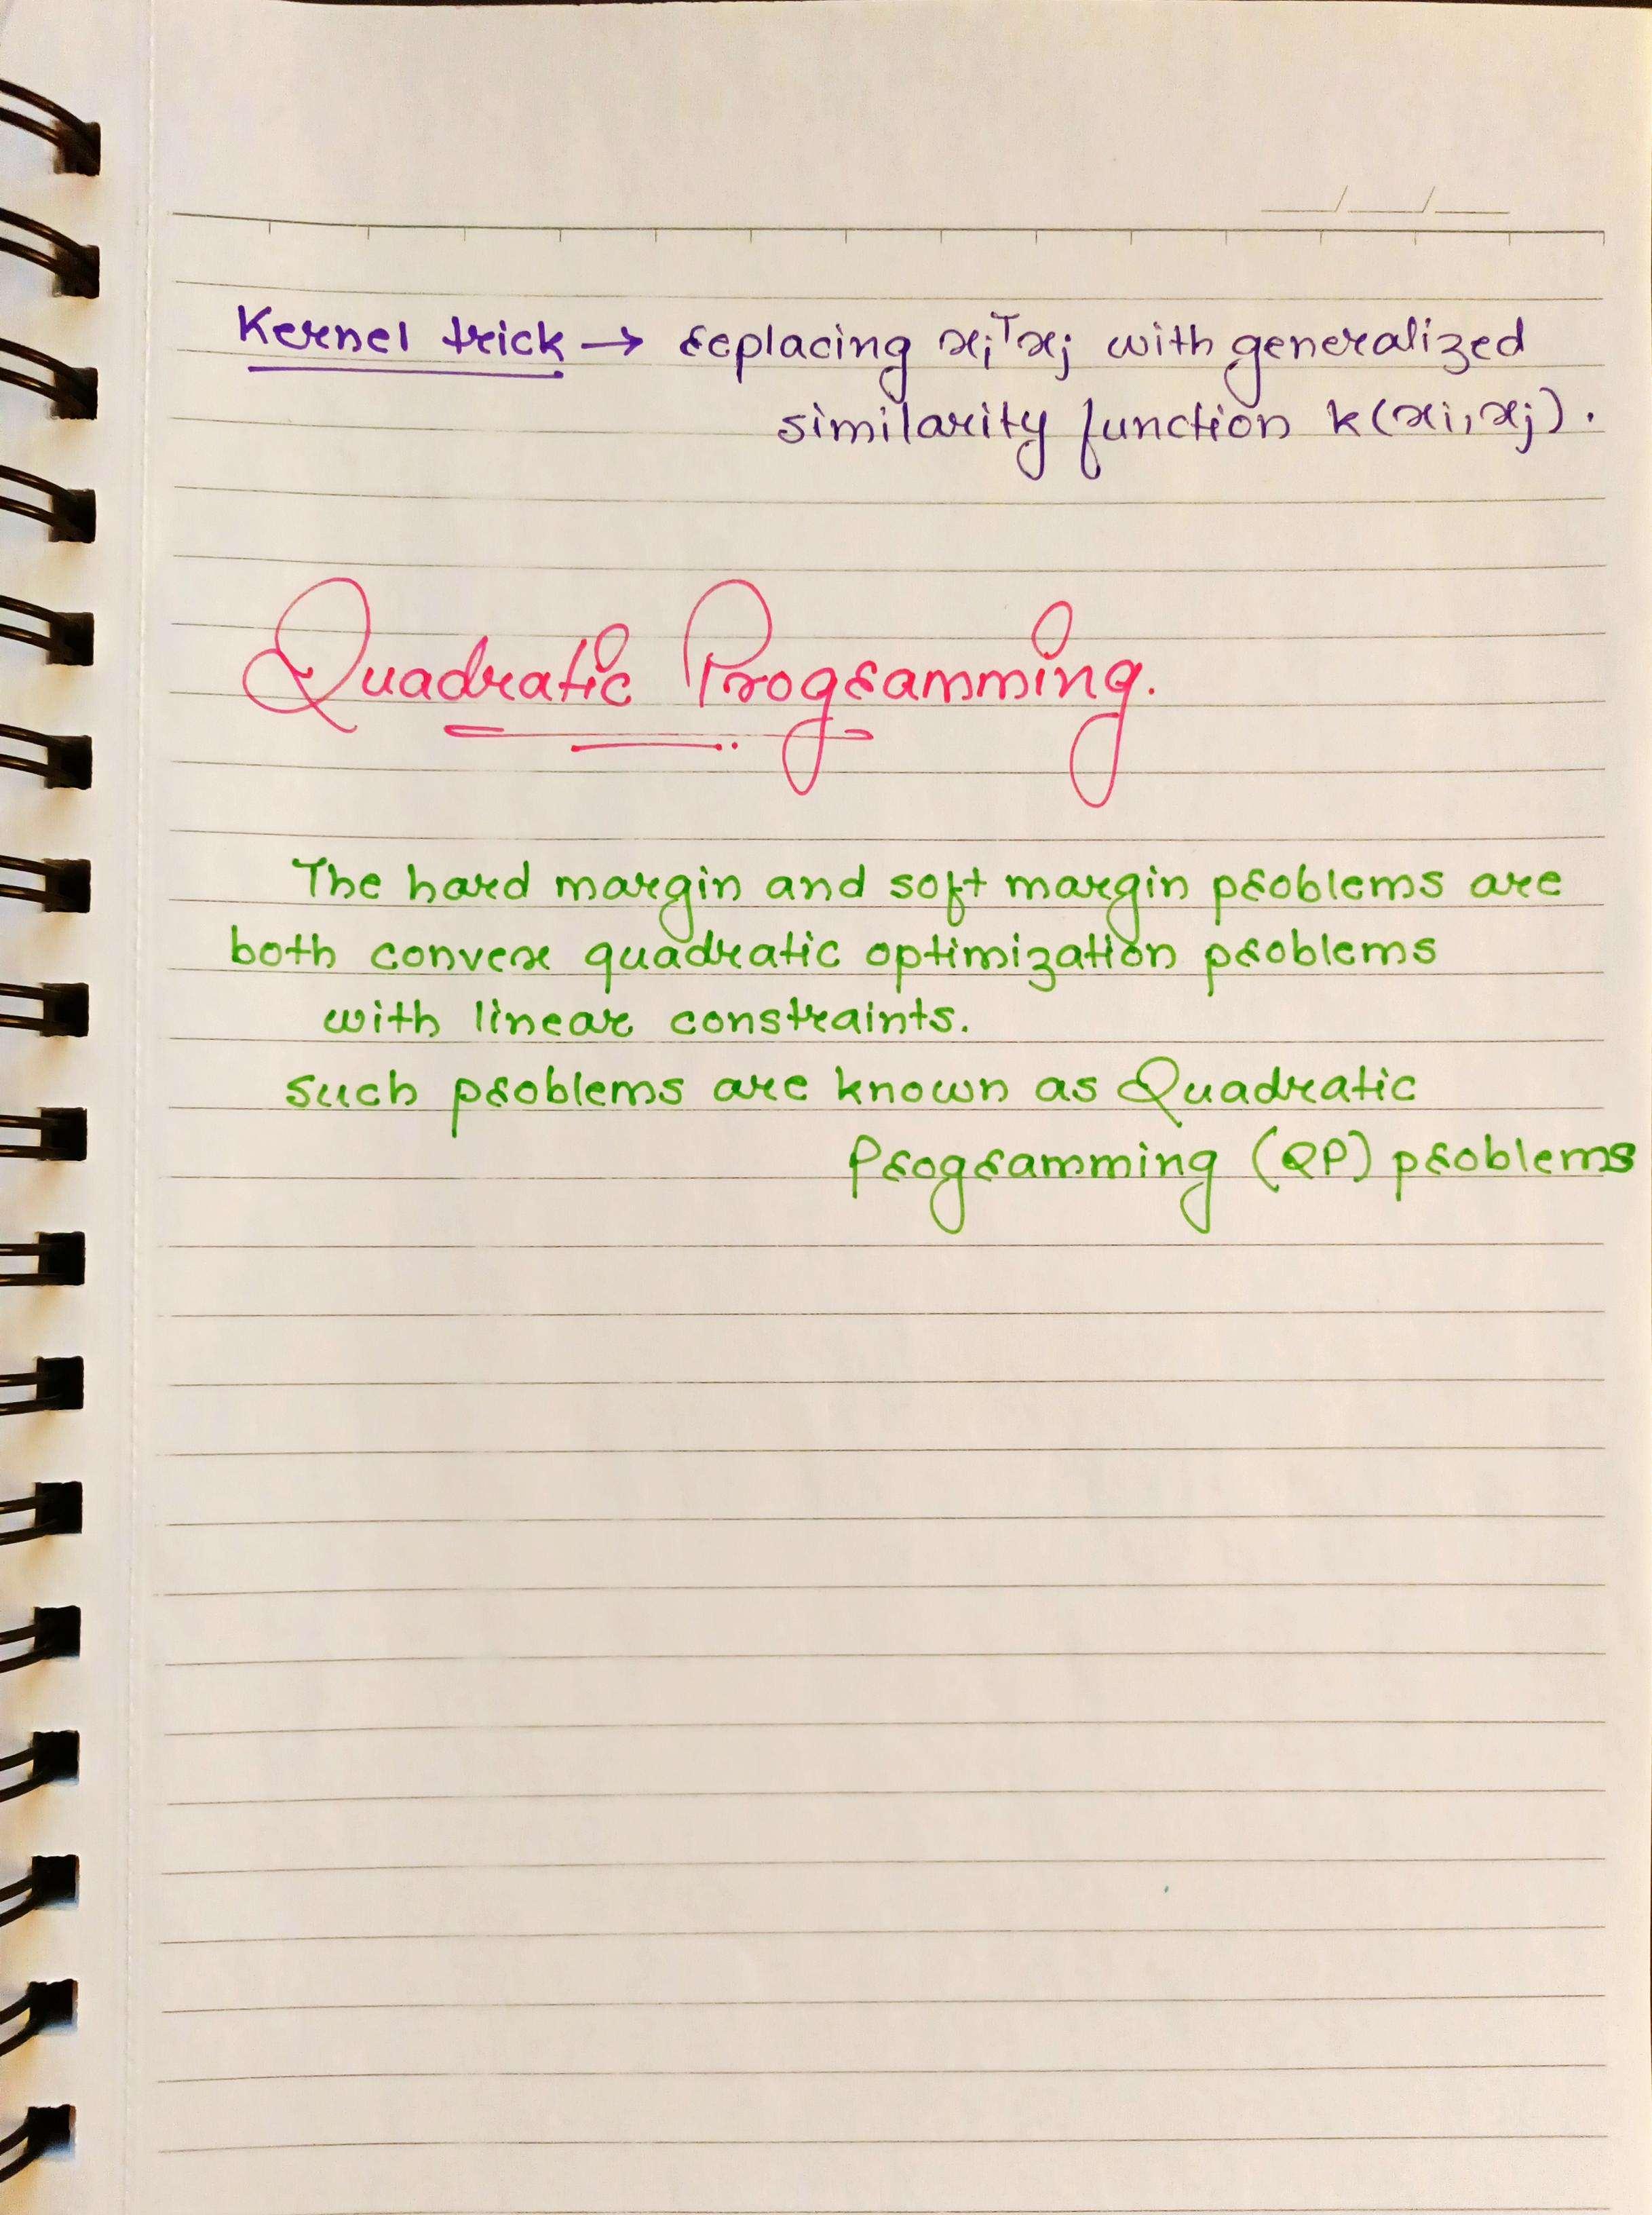 Kernel trick → replacing xᵢᵀxⱼ with generalized
similarity function k(xᵢ, xⱼ).
Quadratic Programming.
The hard margin and soft margin problems are
both convex quadratic optimization problems
with linear constraints.
such problems are known as Quadratic
Programming (QP) problems